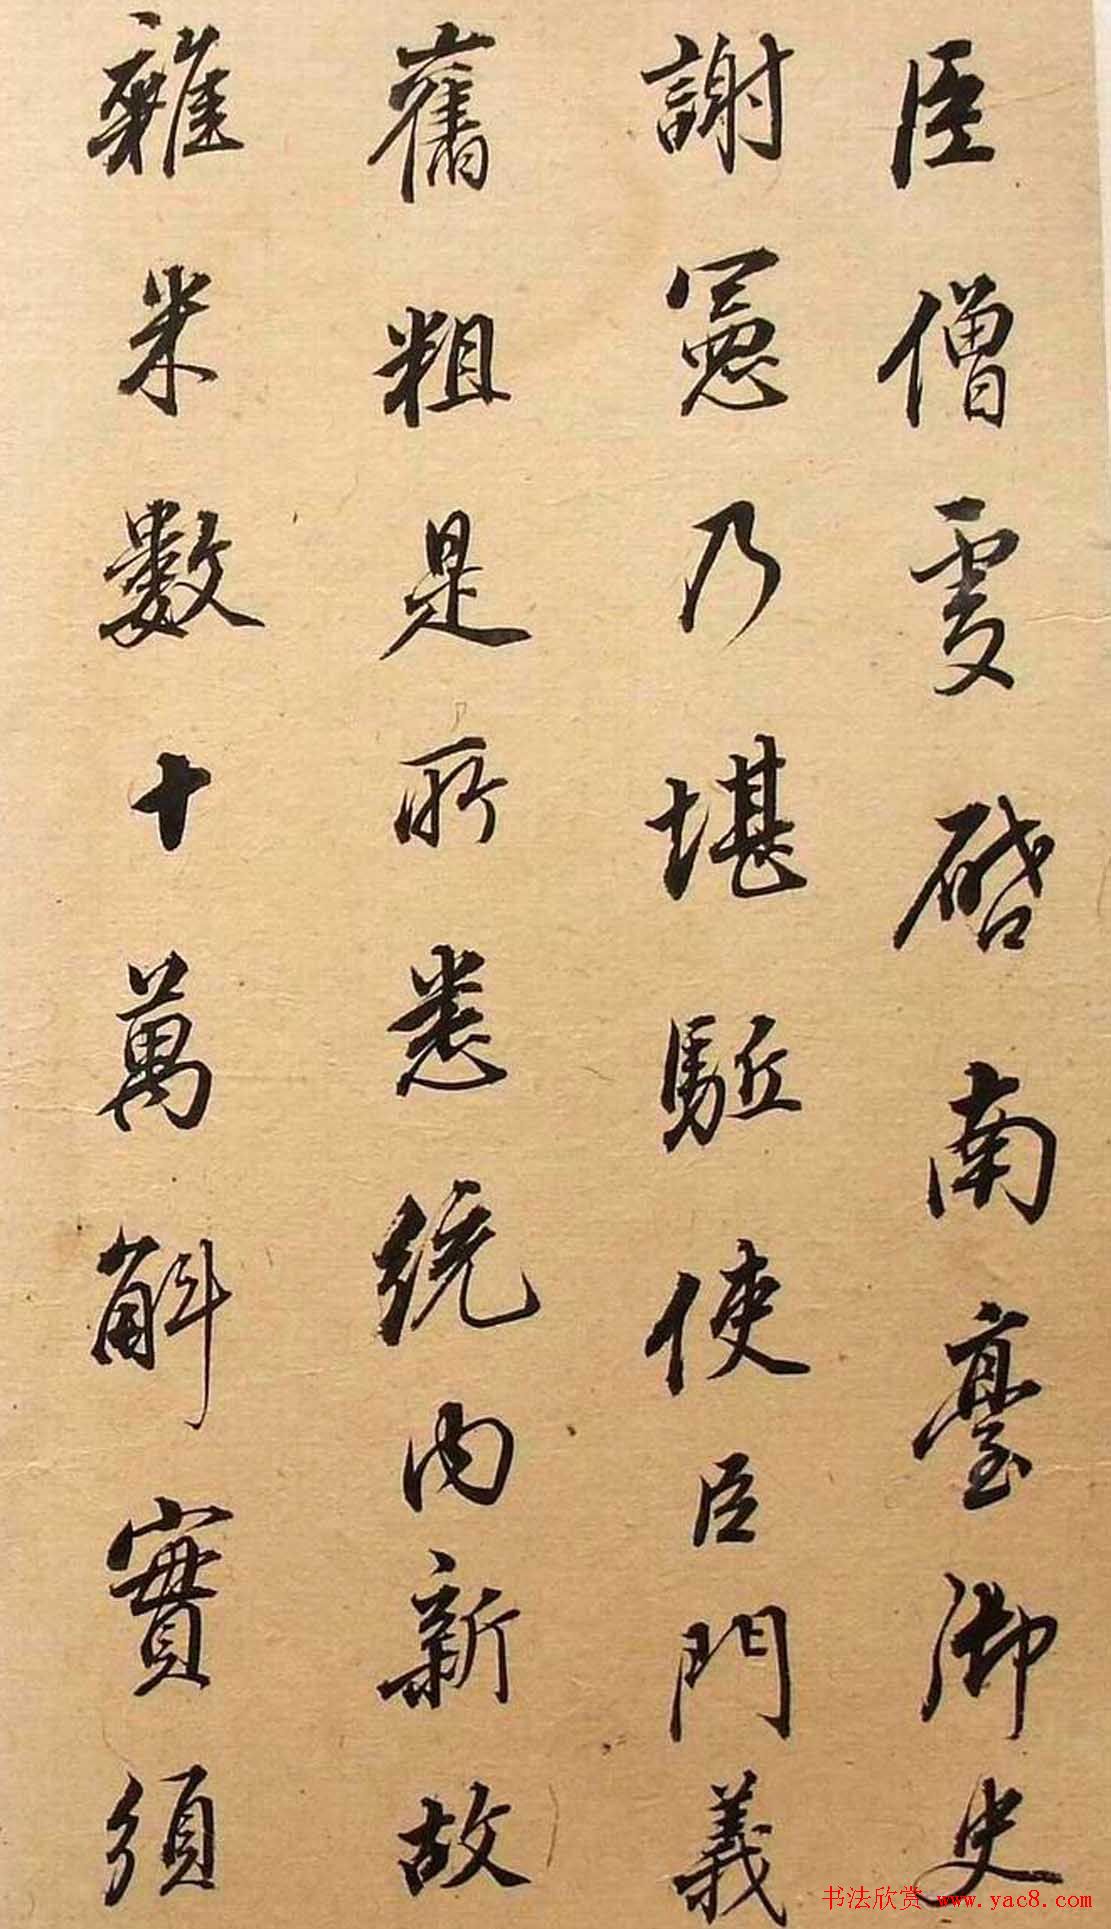 臣僧虔啓南臺御史
謝憲乃堪驅使臣門義
舊粗是所悉統内新故
雜米數十萬斛實須
书法欣赏 www.yac8.com